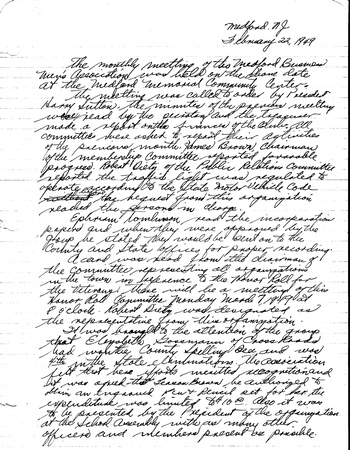 Medford N.J.
February 22, 1949
The monthly meeting of the Medford Business
Men's Association was held on the above date
at the Medford Memorial Community Center.
The meeting was called to order by President
Harry Sutton, the minutes of the previous meeting
were read by the secretary and the treasurer
made a report on the finances of the club. All
committees were asked to report their activities
of the previous month. James Brown, Chairman
of the membership Committee reported favorable
progress. Robert of the Public Relations Committee
reported the traffic light was regulated to
operate according to the State Motor Vehicle Code
the request from this organization
reached the persons in charge.
Ephraim Tomlinson read the incorporation
papers and when they were approved by the
group he stated they would be sent on to the
County and State offices for proper recording.
A card was read from the chairman of
the Committee representing all organizations
in the town in reference to the Honor Roll for
the Veterans. There will be a meeting of this
Honor Roll Committee Monday March 7, 1949 at
8 o'clock. Robert was designated as
the representative from this organization.
It was brought to the attention of the group
that Elizabeth of Cross Roads
had won the County Spelling Bee and was
in the State. The Association
felt that her merited recognition and
it was agreed that Brown be authorized to
an engraved Pen & Pencil set for her, the
expenditure was limited to Also it was
to be presented by the President of the organization
at the School Assembly with as many other
officers and members present as possible.